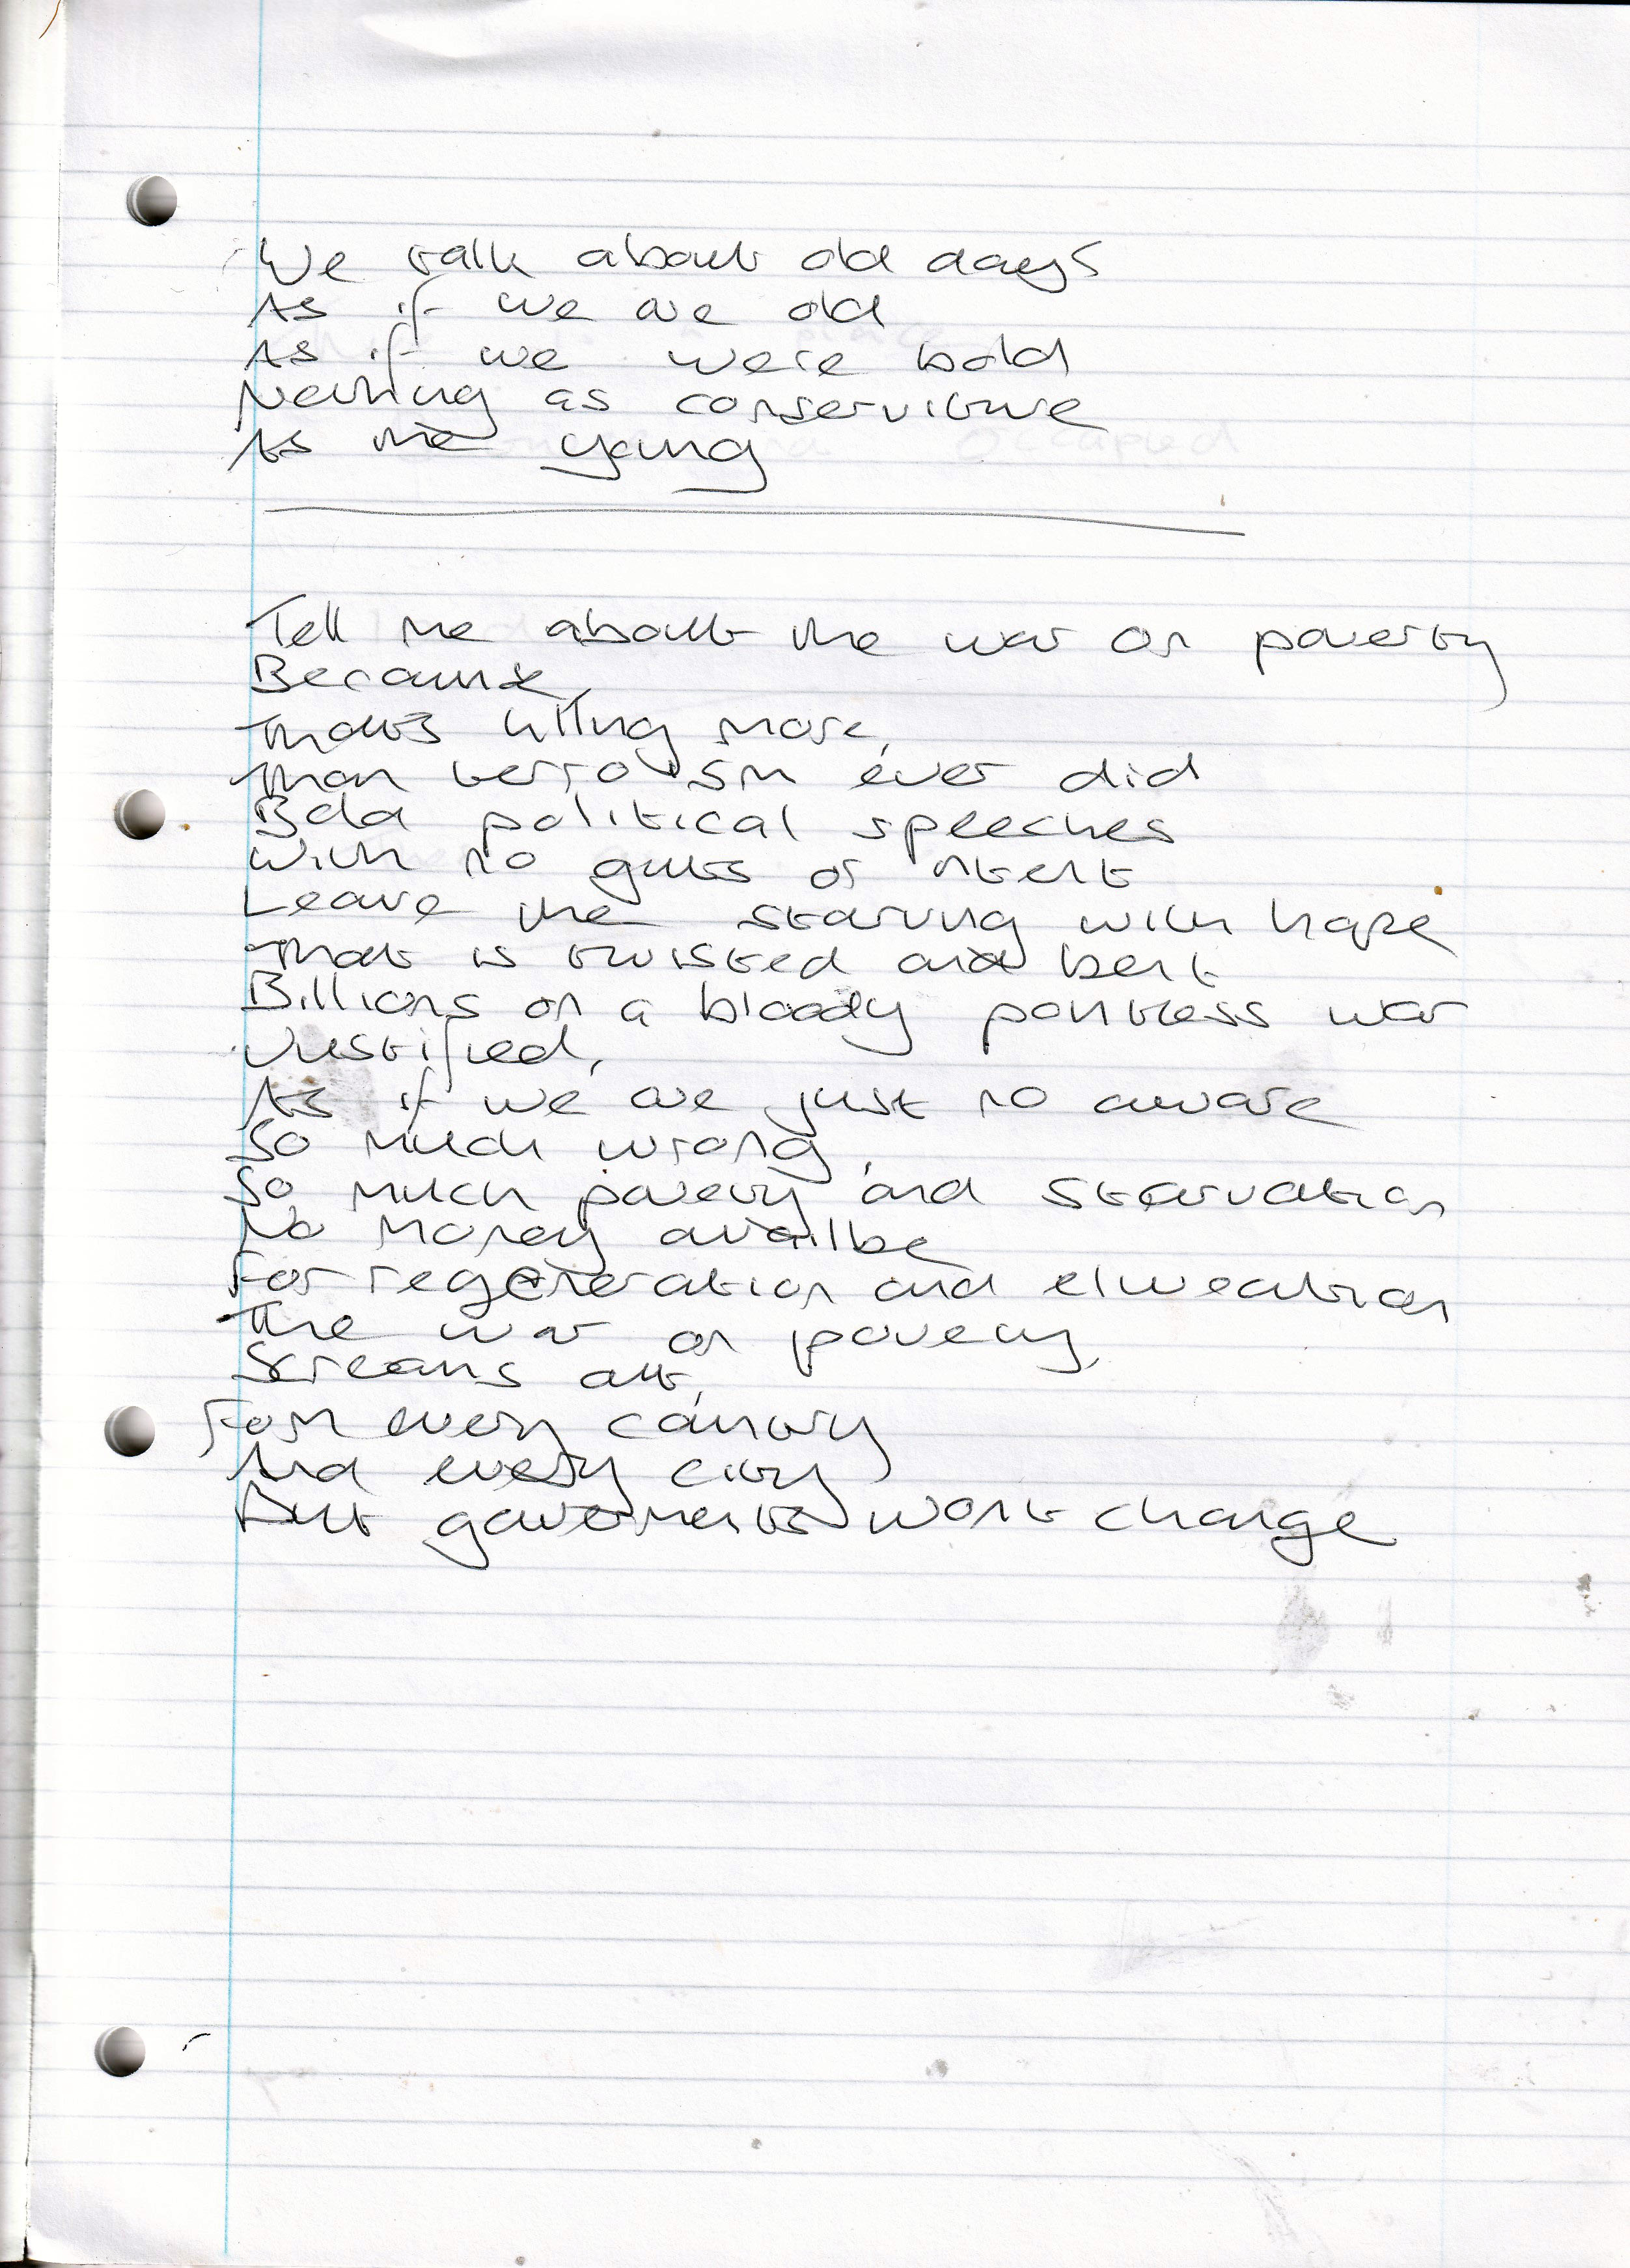 We talk about old days
As if we are old
As if we were bold
Nothing as conservitive
As the young
Tell me about the war on poverty
Because,
Thats killing more,
Than terrorism ever did
Bold political speeches
With no guts or intent
Leave the starving with hope
That is twisted and bent
Billions on a bloody pointless war
Justified,
As if we are just no aware
So much wrong,
So much poverty and starvation
No money availbe
For regeneration and
The war on poverty,
Screams out,
From every country
And every city
But goverments wont change